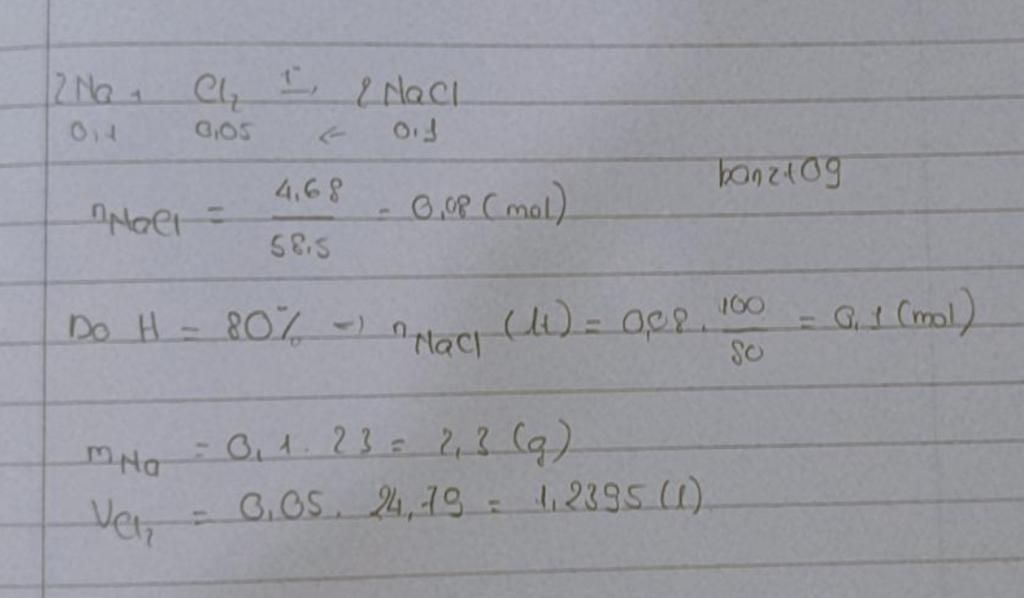 2Na + Cl₂ t°→ 2NaCl
0,1 0,05 ← 0,1
bonz109
nNaCl = 4,68/58,5 = 0,08 (mol)
Do H = 80% → nNaCl (lt) = 0,08 . 100/80 = 0,1 (mol)
mNa = 0,1 . 23 = 2,3 (g)
VCl₂ = 0,05 . 24,79 = 1,2395 (l)